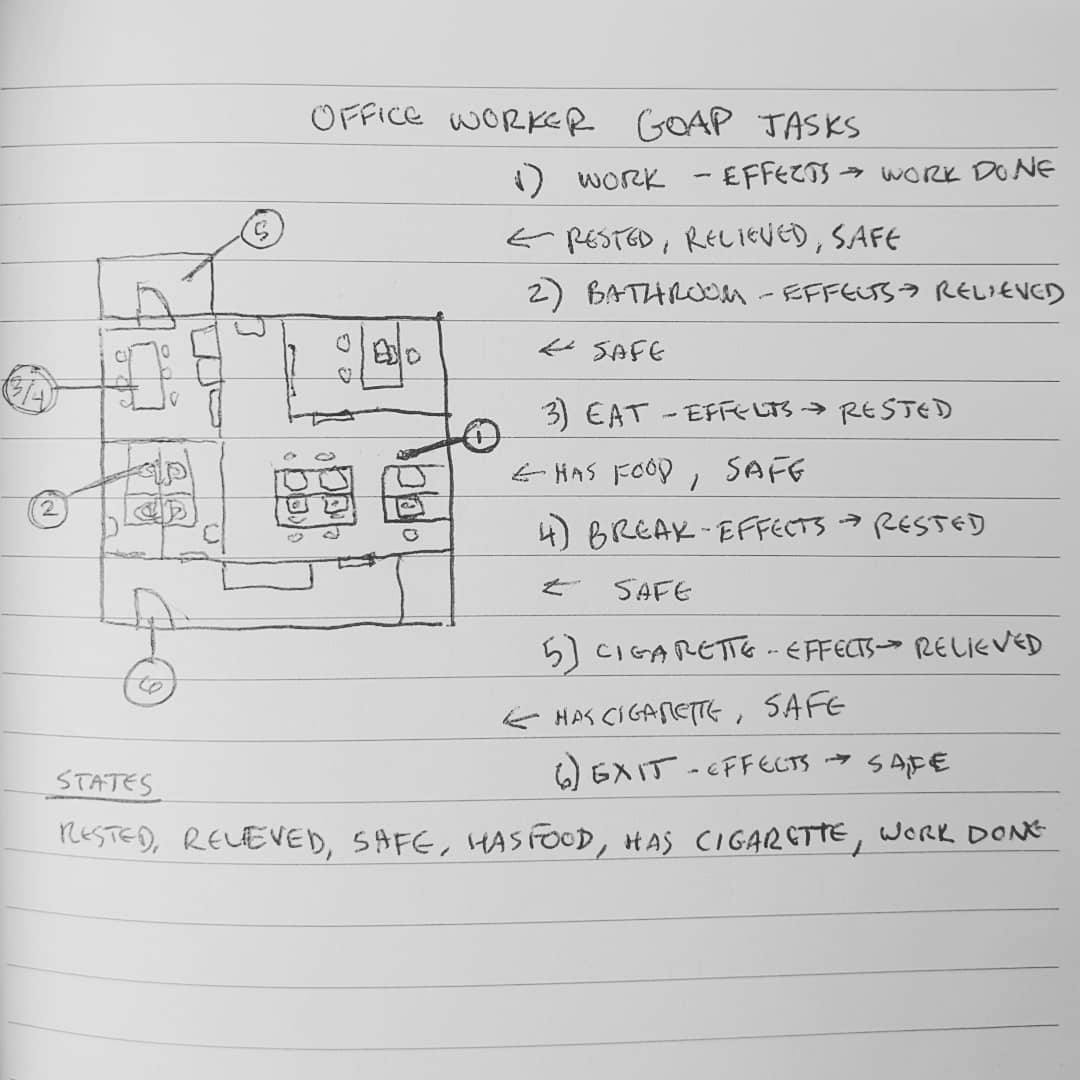 OFFICE WORKER GOAP TASKS
1) WORK - EFFECTS → WORK DONE
← RESTED, RELIEVED, SAFE
2) BATHROOM - EFFECTS → RELIEVED
← SAFE
3) EAT - EFFECTS → RESTED
← HAS FOOD, SAFE
4) BREAK - EFFECTS → RESTED
← SAFE
5) CIGARETTE - EFFECTS → RELIEVED
← HAS CIGARETTE, SAFE
6) EXIT - EFFECTS → SAFE
5
3/4
1
2
6
STATES
RESTED, RELIEVED, SAFE, HAS FOOD, HAS CIGARETTE, WORK DONE